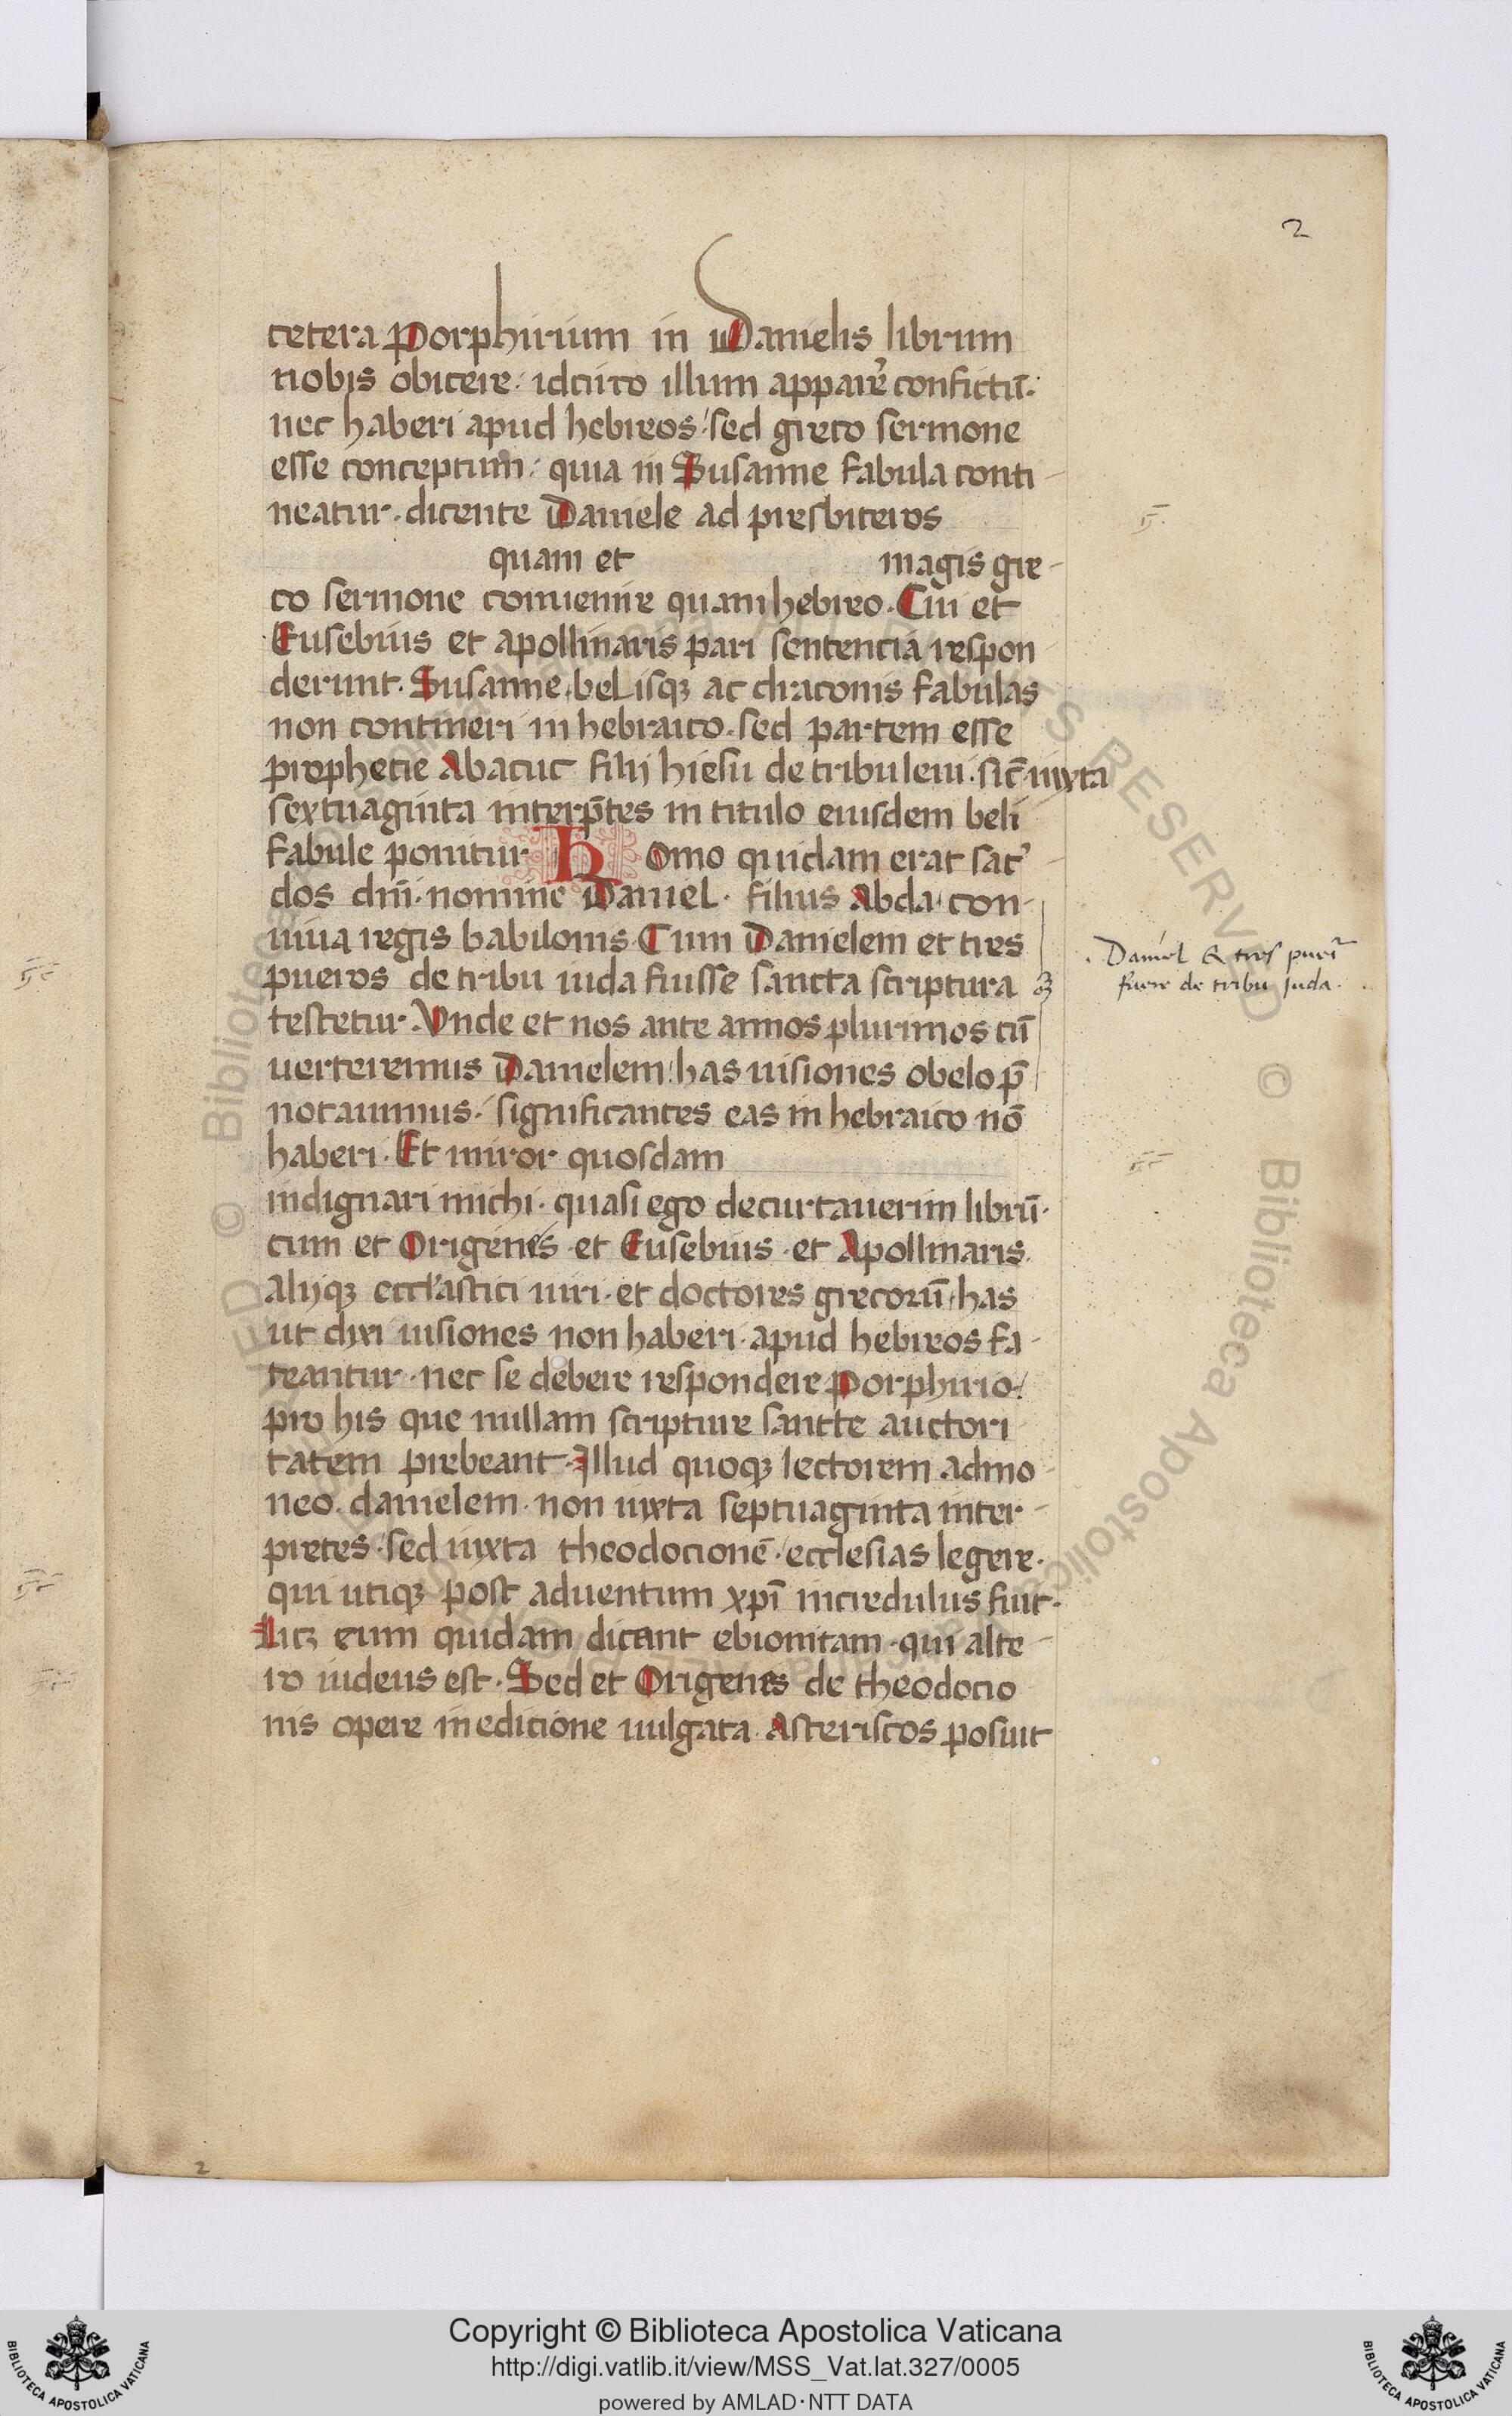 2
cetera Porphirium in Danielis librum
nobis obicere · idcirco illum apparer̉ confictũ ·
nec haberi apud hebreos / sed greco sermone
esse conceptum · quia in Susanne fabula conti-
neatur · dicente Daniele ad presbiteros
quam et magis gre-
co sermone conuenire quam hebreo · Cui et
Eusebius et apollinaris pari sentencia respon
derunt · Susanne belisqꝫ ac draconis fabulas
non contineri in hebraico · sed partem esse
prophetie Abacuc filij hiesu de tribu leui · sic̃ iuxta
sextuaginta interp̃tes in titulo eiusdem beli
fabule ponitur Homo quidam erat sac̉-
dos dñi · nomine Daniel · filius Abda · con-
uiua regis babilonis · Cum Danielem et tres
pueros de tribu iuda fuisse sancta scriptura
testetur · Vnde et nos ante annos plurimos cũ
uerteremus Danielem / has uisiones obelo p̃
notauimus · significantes eas in hebraico nõ
haberi · Et miror quosdam
indignari michi · quasi ego decurtauerim librũ ·
cum et Origenes · et Eusebius · et Apollinaris
alijqꝫ eccl'astici uiri · et doctores grecorũ · has
ut dixi uisiones non haberi · apud hebreos fa-
teantur · nec se debere respondere Porphirio /
pro his que nullam scripture sancte auctori
tatem prebeant · Illud quoqꝫ lectorem admo-
neo · danielem · non iuxta septuaginta inter-
pretes · sed iuxta theodocionẽ · ecclesias legere ·
qui utiqꝫ post aduentum xp̃i incredulus fuit ·
Licꝫ eum quidam dicant ebionitam · qui alte-
ro iudeus est · Sed et Origenes de theodocio
nis opere in edicione uulgata · Asteriscos posuit
Daniel & tres pueri
fuere de tribu Juda ·
2
Copyright © Biblioteca Apostolica Vaticana
http://digi.vatlib.it/view/MSS_Vat.lat.327/0005
powered by AMLAD·NTT DATA
BIBLIOTECA APOSTOLICA VATICANA
BIBLIOTECA APOSTOLICA VATICANA